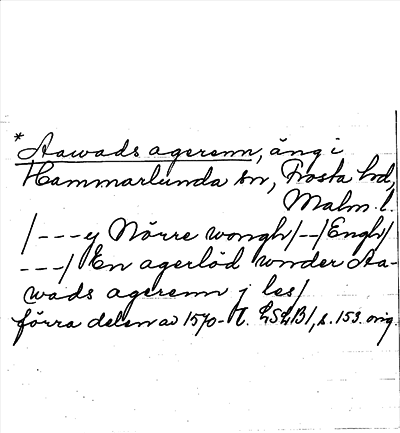 * Aawads agerenn, äng i
Hammarlunda sn, Frosta hd,
Malm. l.
/---y Nörre wongh/--/Engh/
---/ En agerlöd wnder Aa-
wads agerenn j les/
förra delen av 1570-t. LSLB/, s. 153. orig.